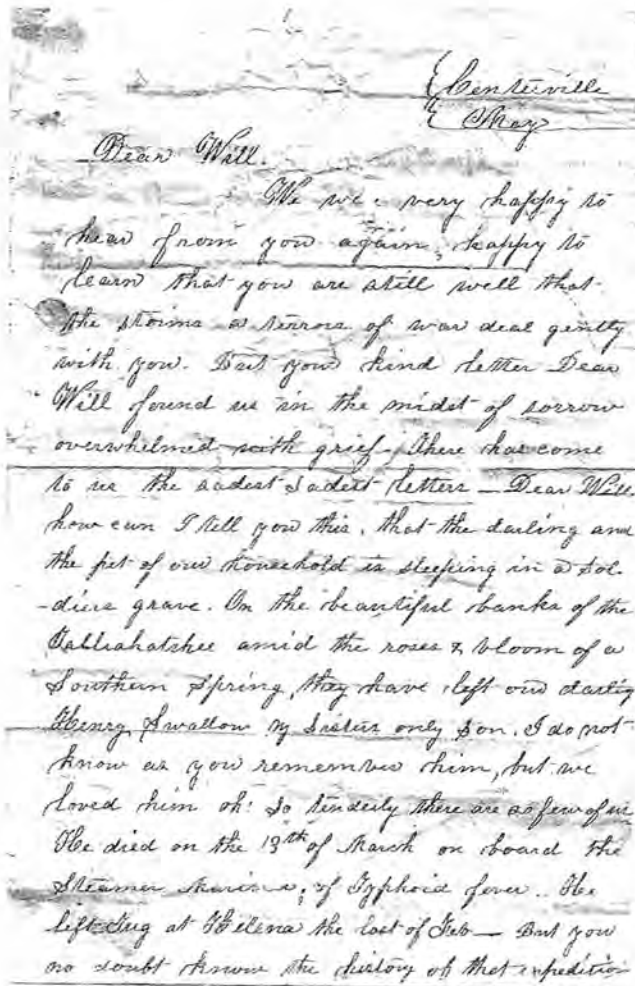 Centerville
May
Dear Will.
We were very happy to
hear from you again, happy to
learn that you are still well that
the storms & terrors of war deal gently
with you. But your kind letter Dear
Will found us in the midst of sorrow
overwhelmed with grief. There has come
to us the sadest sadest letters — Dear Will
how can I tell you this, that the darling and
the pet of our household is sleeping in a Sol-
-diers grave. On the beautiful banks of the
Tallahatchee amid the roses & bloom of a
Southern Spring, they have left our darlig
Henry Swallow my Sisters only Son. I do not
know as you remember him, but we
loved him oh! so tenderly there are so few of us
He died on the 13th of March on board the
Steamer of Typhoid fever. He
left at Helena the last of Feb — But you
no doubt know the history of that expedition